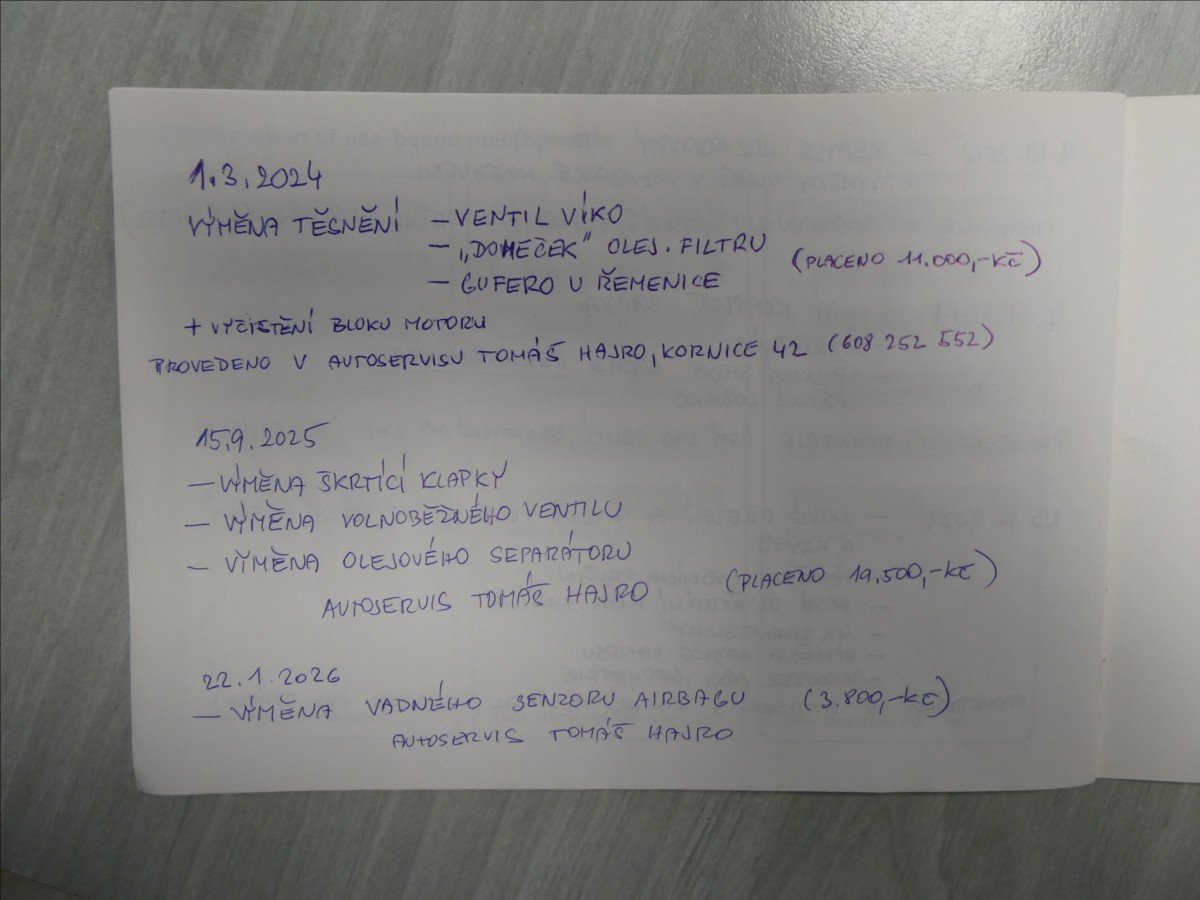 1.3.2024
VÝMĚNA TĚSNĚNÍ – VENTIL VÍKO
– „DOMEČEK" OLEJ. FILTRU (PLACENO 11.000,-KČ)
– GUFERO U ŘEMENICE
+ VYČIŠTĚNÍ BLOKU MOTORU
PROVEDENO V AUTOSERVISU TOMÁŠ HAJRO, KORNICE 42 (608 252 552)
15.9.2025
– VÝMĚNA ŠKRTÍCÍ KLAPKY
– VÝMĚNA VOLNOBĚŽNÉHO VENTILU
– VÝMĚNA OLEJOVÉHO SEPARÁTORU
AUTOSERVIS TOMÁŠ HAJRO (PLACENO 19.500,-KČ)
22.1.2026
– VÝMĚNA VADNÉHO SENZORU AIRBAGU (3.800,-KČ)
AUTOSERVIS TOMÁŠ HAJRO